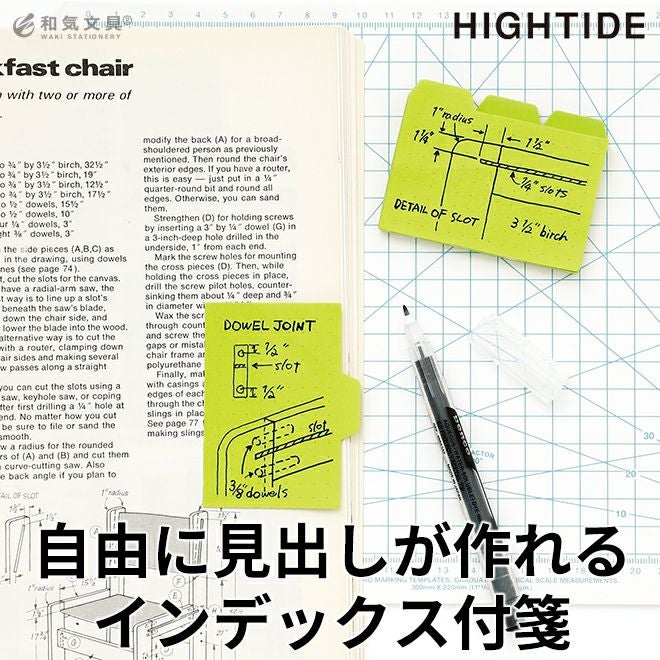 和気文具®
WAKI STATIONERY
HIGHTIDE
kfast chair
with two or more of
to ¾" by 3½" birch, 32½"
to ¾" by 3½" birch, 19"
to ¾" by 3½" birch, 12½"
to ¾" by 3½" birch, 17½"
½" dowels, 15½"
½" dowels, 10"
our ¼" dowels, 3"
ght ⅜" dowels, 3"
the side pieces (A,B,C) as
in the drawing, using dowels
nes (see page 74).
t, cut the slots for the canvas.
have a radial-arm saw, the
st way is to line up a slot's
beneath the saw's blade,
down the chair side, and
lower the blade into the wood.
alternative way is to cut the
with a router, clamping down
air sides and making several
w passes along a straight
you can cut the slots using a
saw, keyhole saw, or coping
fter first drilling a ¼" hole at
end. No matter how you cut
be sure to file or sand the
smooth.
w a radius for the rounded
rs of (A) and (B) and cut them
curve-cutting saw. Also
e back angle if you plan to
modify the back (A) for a broad-
shouldered person as previously
mentioned. Then round the chair's
exterior edges. If you have a router,
this is easy — just put in a ¼"
quarter-round bit and round all
edges. Otherwise, you can sand
them.
Strengthen (D) for holding screws
by inserting a 3" by ¼" dowel (G) in
a 3-inch-deep hole drilled in the
underside, 1" from each end.
Mark the screw holes for mounting
the cross pieces (D). Then, while
holding the cross pieces in place,
drill the screw pilot holes, counter-
sinking them about ¼" deep and ¾"
in diameter
Wax the scr
through count
and screw the
gaps or mistak
chair frame ar
polyurethane
Finally, mak
with casings a
edges of each
through the
slings in place
See page 77 f
1" radius
1¼"
1½"
¼" slots
DETAIL OF SLOT
3½" birch
DOWEL JOINT
½"
slot
½"
slot
⅜" dowels
AIL OF SLOT
1" radius
15½"
自由に見出しが作れる
インデックス付箋
300mm X 220mm